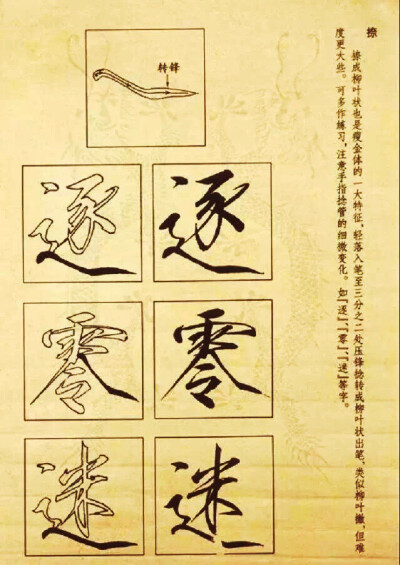 捺
捺成柳叶状也是瘦金体的一大特征,轻落入笔至三分之二处压锋捻转成柳叶状出笔,类似柳叶撇,但难
度更大些。可多作练习,注意手指捻管的细微变化。如『逐』、『零』、『迷』等字。
转锋
逐 逐
零 零
迷 迷